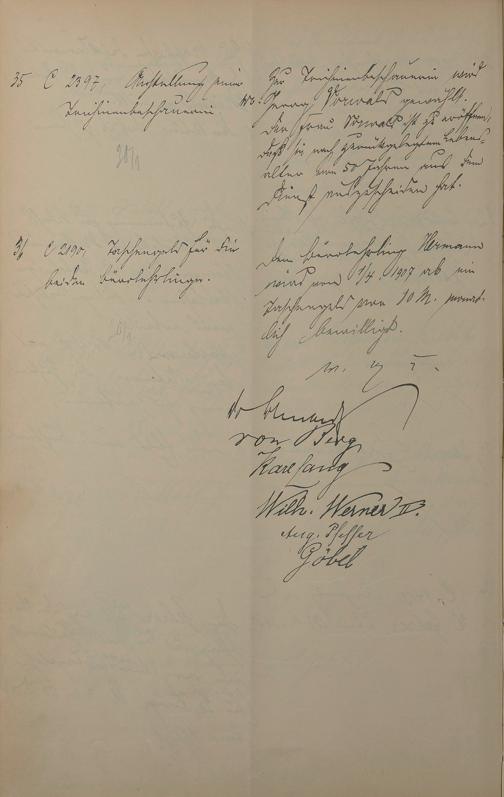 35 C 2397, Anstellung einer
Trichinenbeschauerin.
Zur Trichinenbeschauerin wird
Vorwald gewählt.
Der Frau Vorwald ist zu eröffnen,
daß sie nach zurückgelegtem Lebens-
alter von 50 Jahren aus dem
Dienst auszuscheiden hat.
36 C 2190, Taschengeld für die
beiden Bürolehrlinge.
Dem Bürolehrling Hermann
wird vom 1/4. 1907 ab ein
Taschengeld von 10 M. monat-
lich bewilligt.
von Berg
Karl Lang
Wilh. Werner II.
Aug. Pfeffer
Göbel